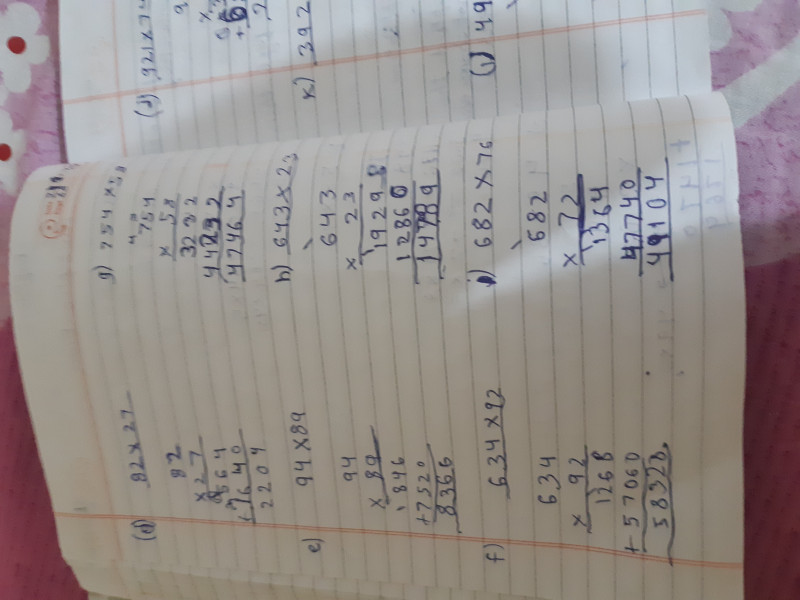 (d) 92 x 27
92
x 27
664
+ 1640
2204
e) 94 x 89
94
x 89
846
+7520
8366
f) 634 x 92
634
x 92
1268
+ 57060
58328
g) 754 x 58
754
x 58
47464
h) 643 x 23
643
x 23
12860
14789
682 x 76
682
x 72
1364
47740
49104
(J) 921 x 74
K) 392
(L) 49